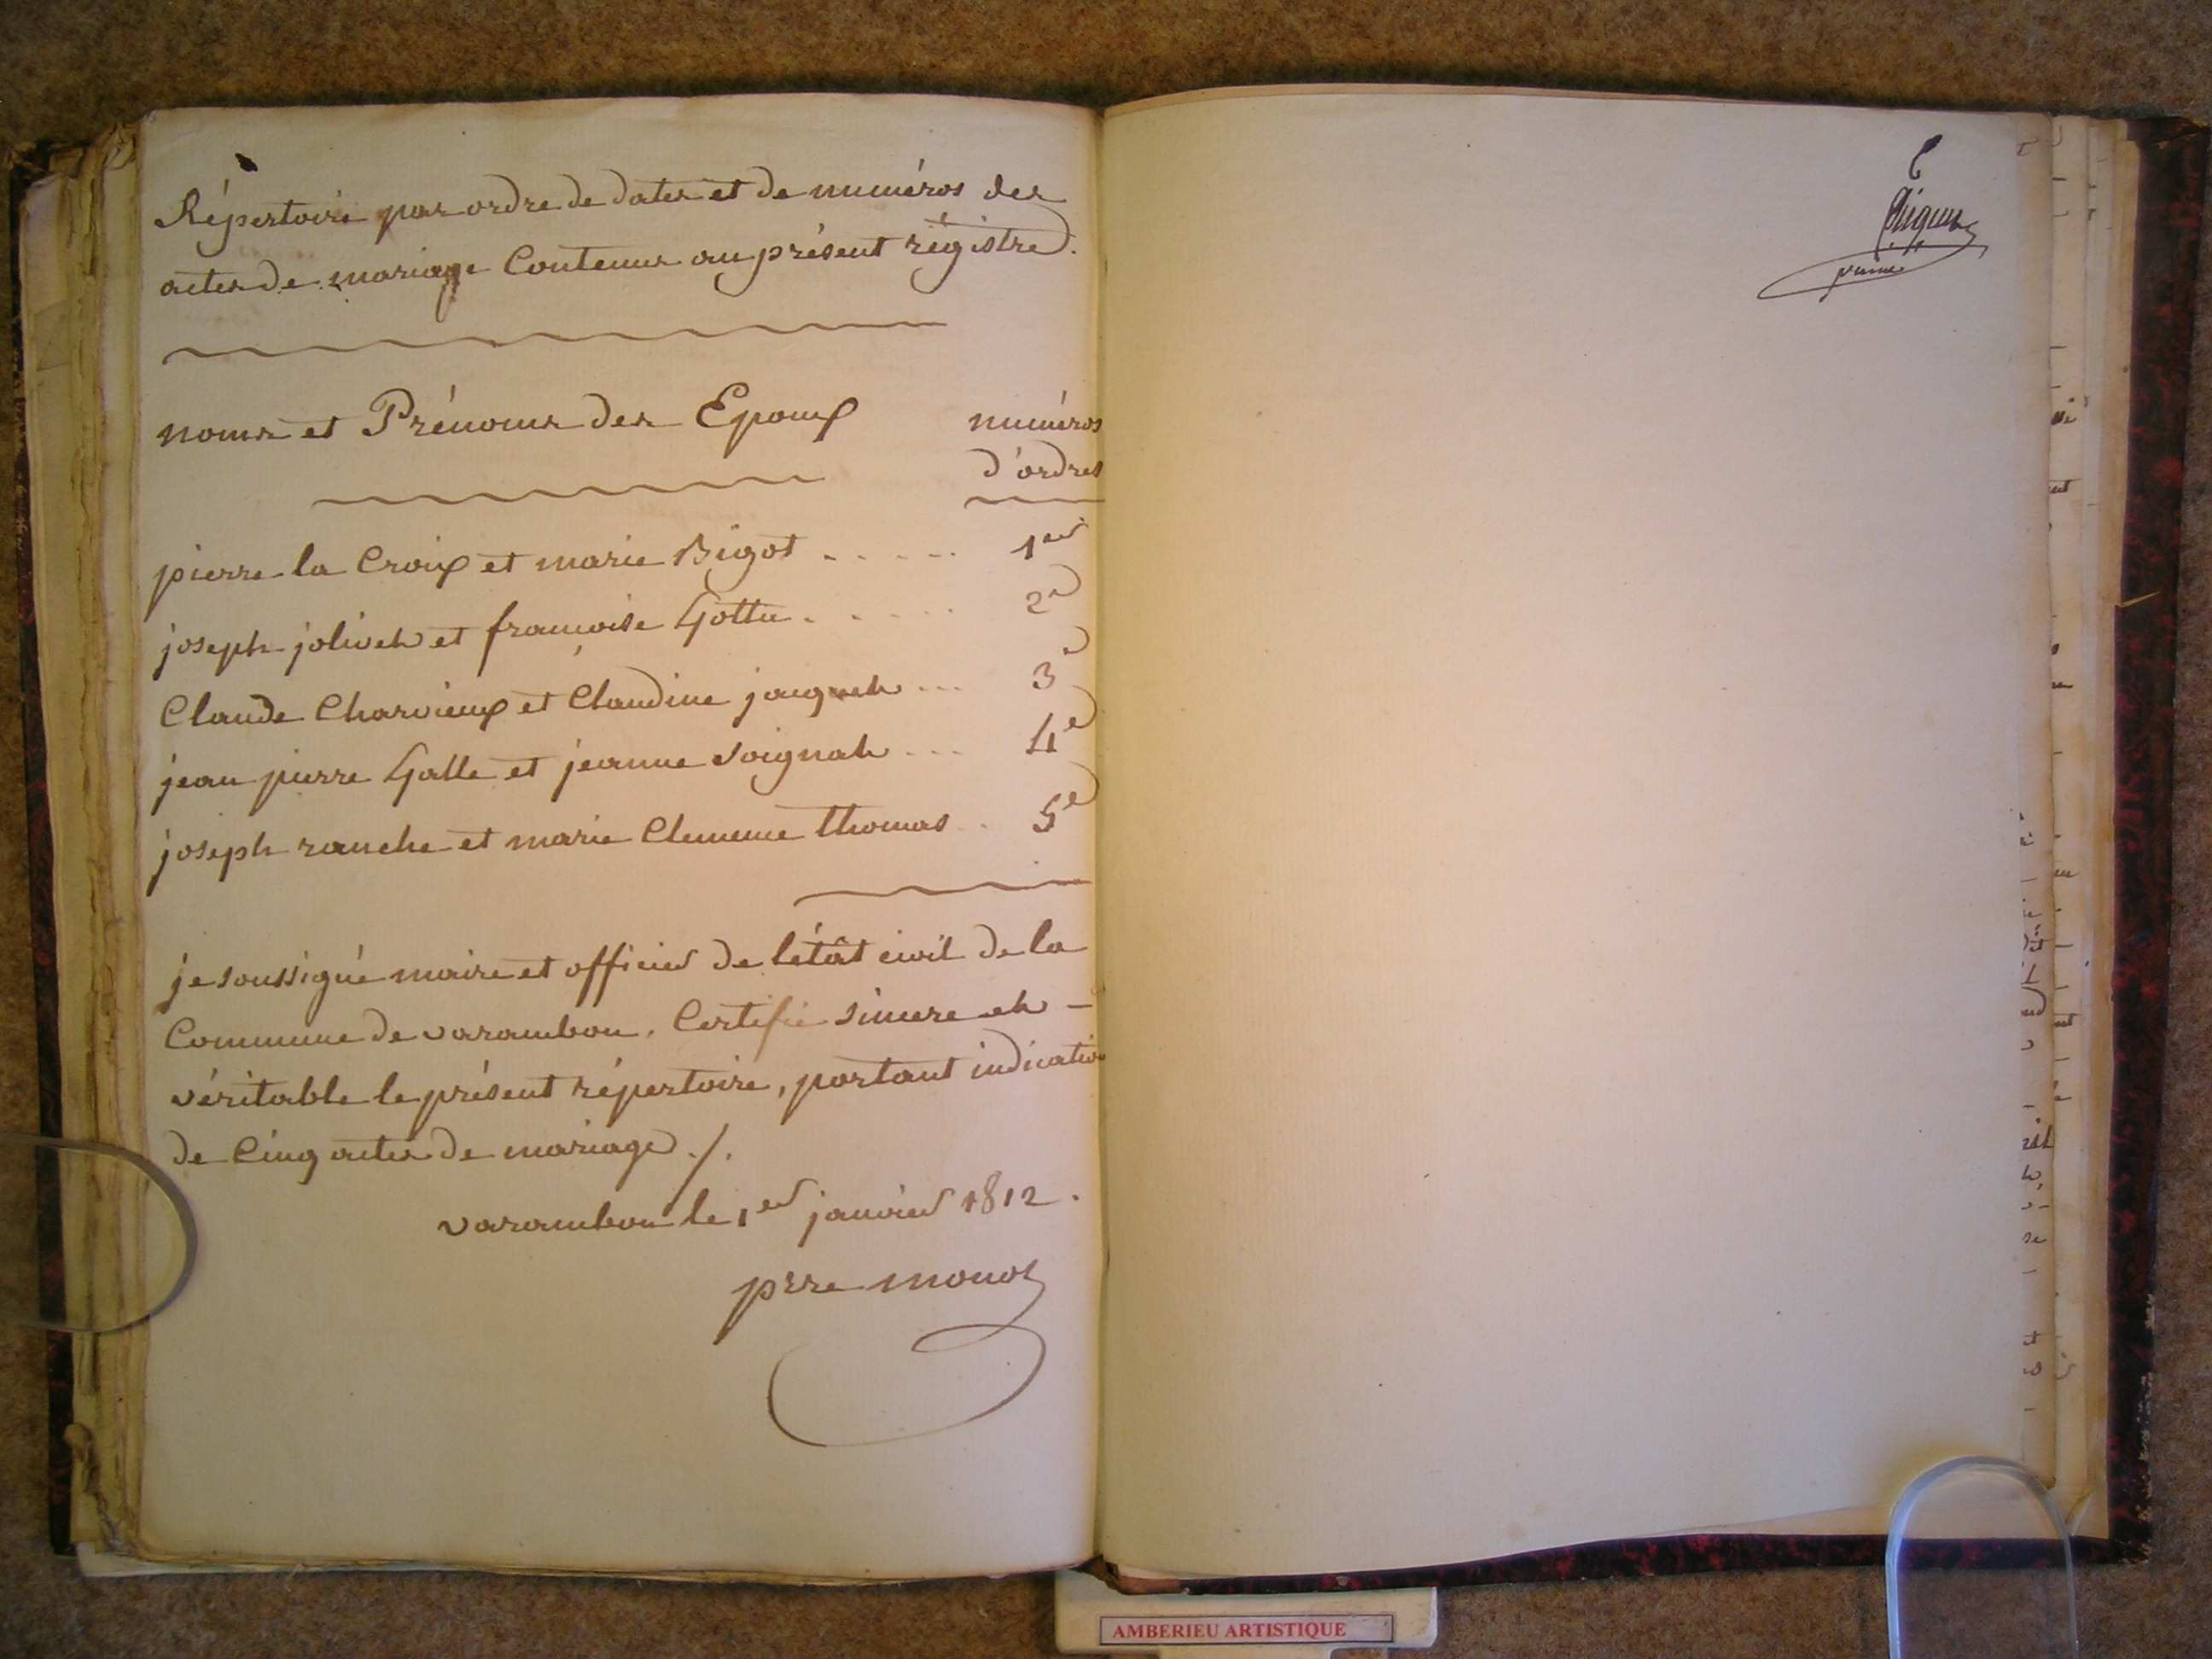 Répertoire par ordre de dates et de numéros des
actes de mariage Contenus au présent régistre.
noms et Prénoms des Epoux
numéros
d'ordres
pierre la Croix et marie Bigot ..... 1er
joseph jolivet et françoise Gottu ..... 2e
Claude Charvieux et Claudine jaquet ... 3e
jean pierre Galle et jeanne Soignat ... 4e
joseph ranche et marie Clemence thomas .. 5e
je soussigné maire et officier de létât civil de la
Commune de varambon. Certifie sincere et -
véritable le présent répertoire, portant indication
de Cinq actes de mariage ./.
varambon le 1er janvier 1812.
prre monot
6
AMBERIEU ARTISTIQUE